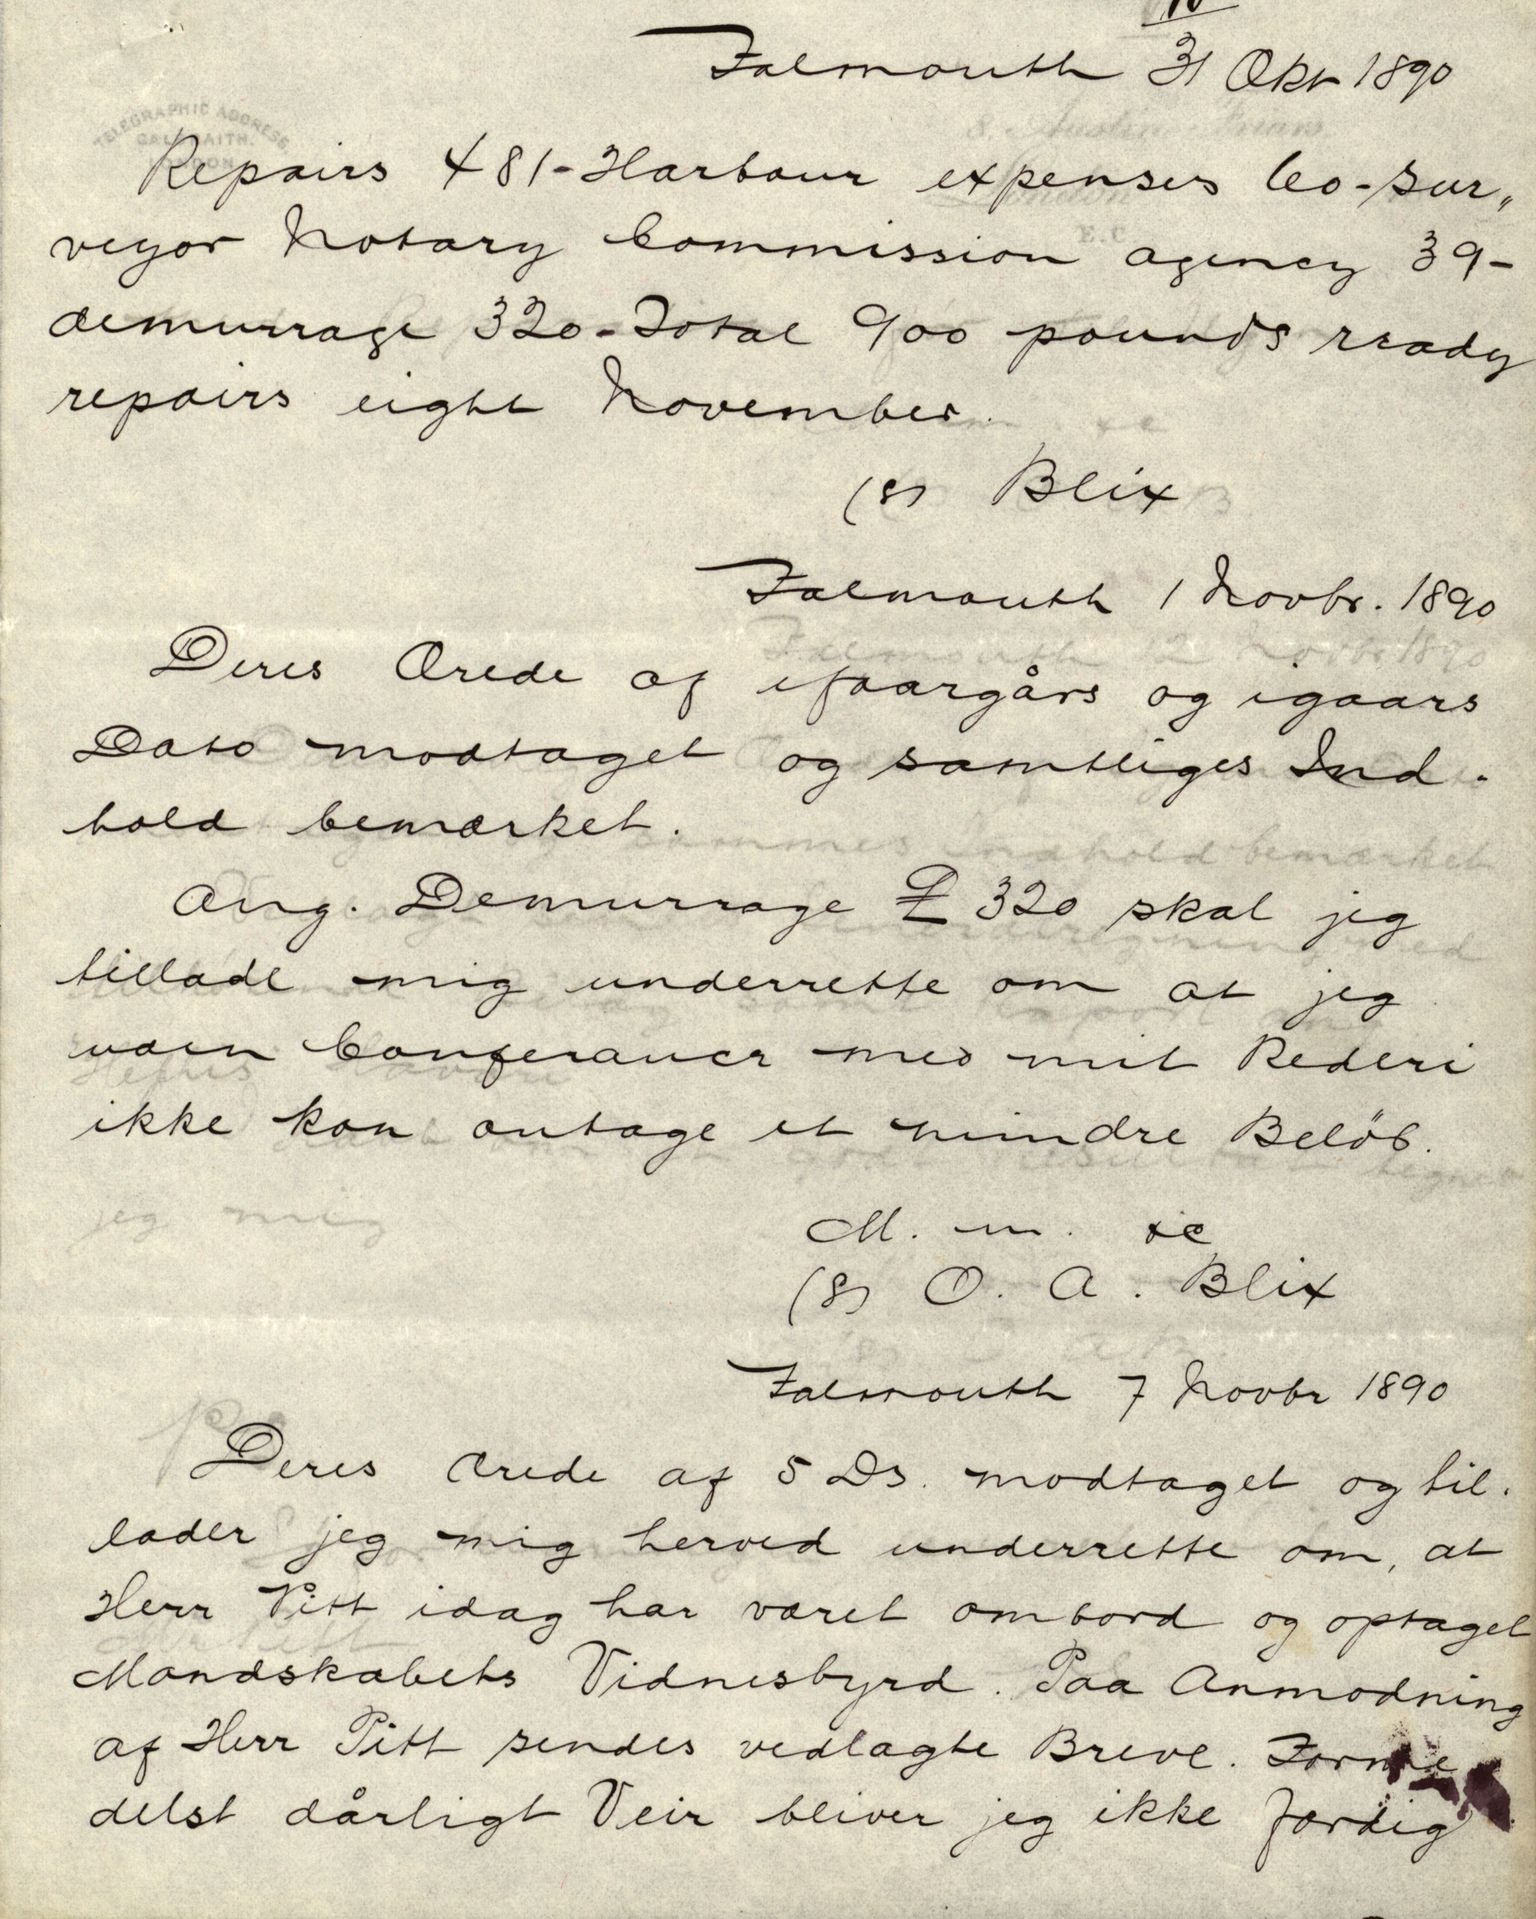 Falmouth 31 Okt 1890
TELEGRAPHIC ADDRESS
LONDON
Repairs 481 - Harbour expenses Co-sur„
veyor Notary Commission agency 39-
demurrage 320 - Total 900 pounds ready
repairs eight November.
(s) Blix
Falmouth 1 Novbr. 1890
Deres Ærede af ifaargårs og igaars
Dato modtaget og samtliges Ind-
hold bemærket.
Ang. Demurrage £ 320 skal jeg
tillade mig underrette om at jeg
uden Conferancer med mit Rederi
ikke kan antage et mindre Beløb.
M. m. &c
(s) O. A. Blix
Falmouth 7 Novbr 1890
Deres Ærede af 5 Ds. modtaget og til-
lader jeg mig herved underrette om, at
Herr Pitt idag har været ombord og optaget
Mandskabets Vidnesbyrd. Paa Anmodning
af Herr Pitt sendes vedlagte Breve. Forme
delst dårligt Veir bliver jeg ikke færdig